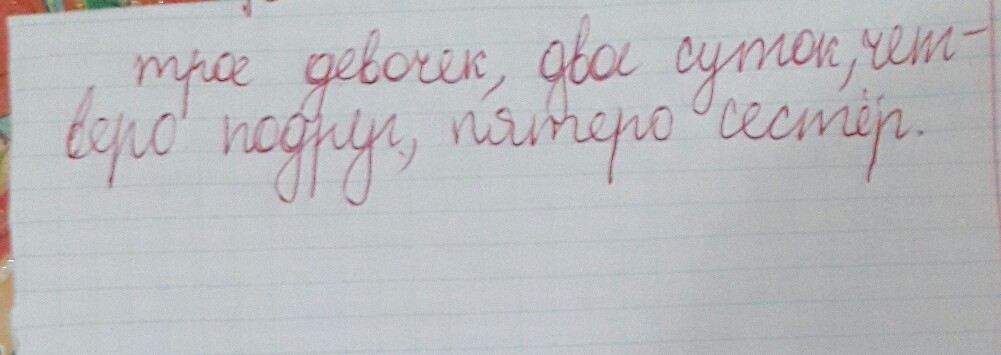 трое девочек, двое суток, чет-
веро подруг, пятеро сестёр.